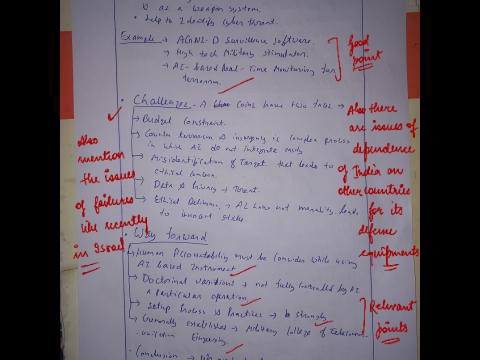 as a weapon system.
• help to Identify cyber threat.
Example → AGNI-D Survillence software.
→ High tech Military stimulator.
→ AI-based Real-Time Monitoring for
terrorism.
Good
point
• Challenges - A Coin have two face →
→ Budget Constraint.
→ Counter terrorism & insurgency is complex process
in which AI do not integrate easily
→ Misidentification of Target that leads to
ethical
→ Data & Privacy → Threat.
→ Ethical Dilemma, AI not morality, leads
to
Also
mention
the issues
of failures
like recently
in Israel
Also there
are issues of
dependence
of India on
other countries
for its
defense
equipments
• Way forward
→ Human Accountability must be consider while using
AI based Instrument
→ Doctorinal variations → not fully controlled by AI
a particular operation
→ Setup Process & Practices → be strongly
→ Generally establishes → Military College of Telecomm-
unication Engineering.
Relevant
points
Conclusion →